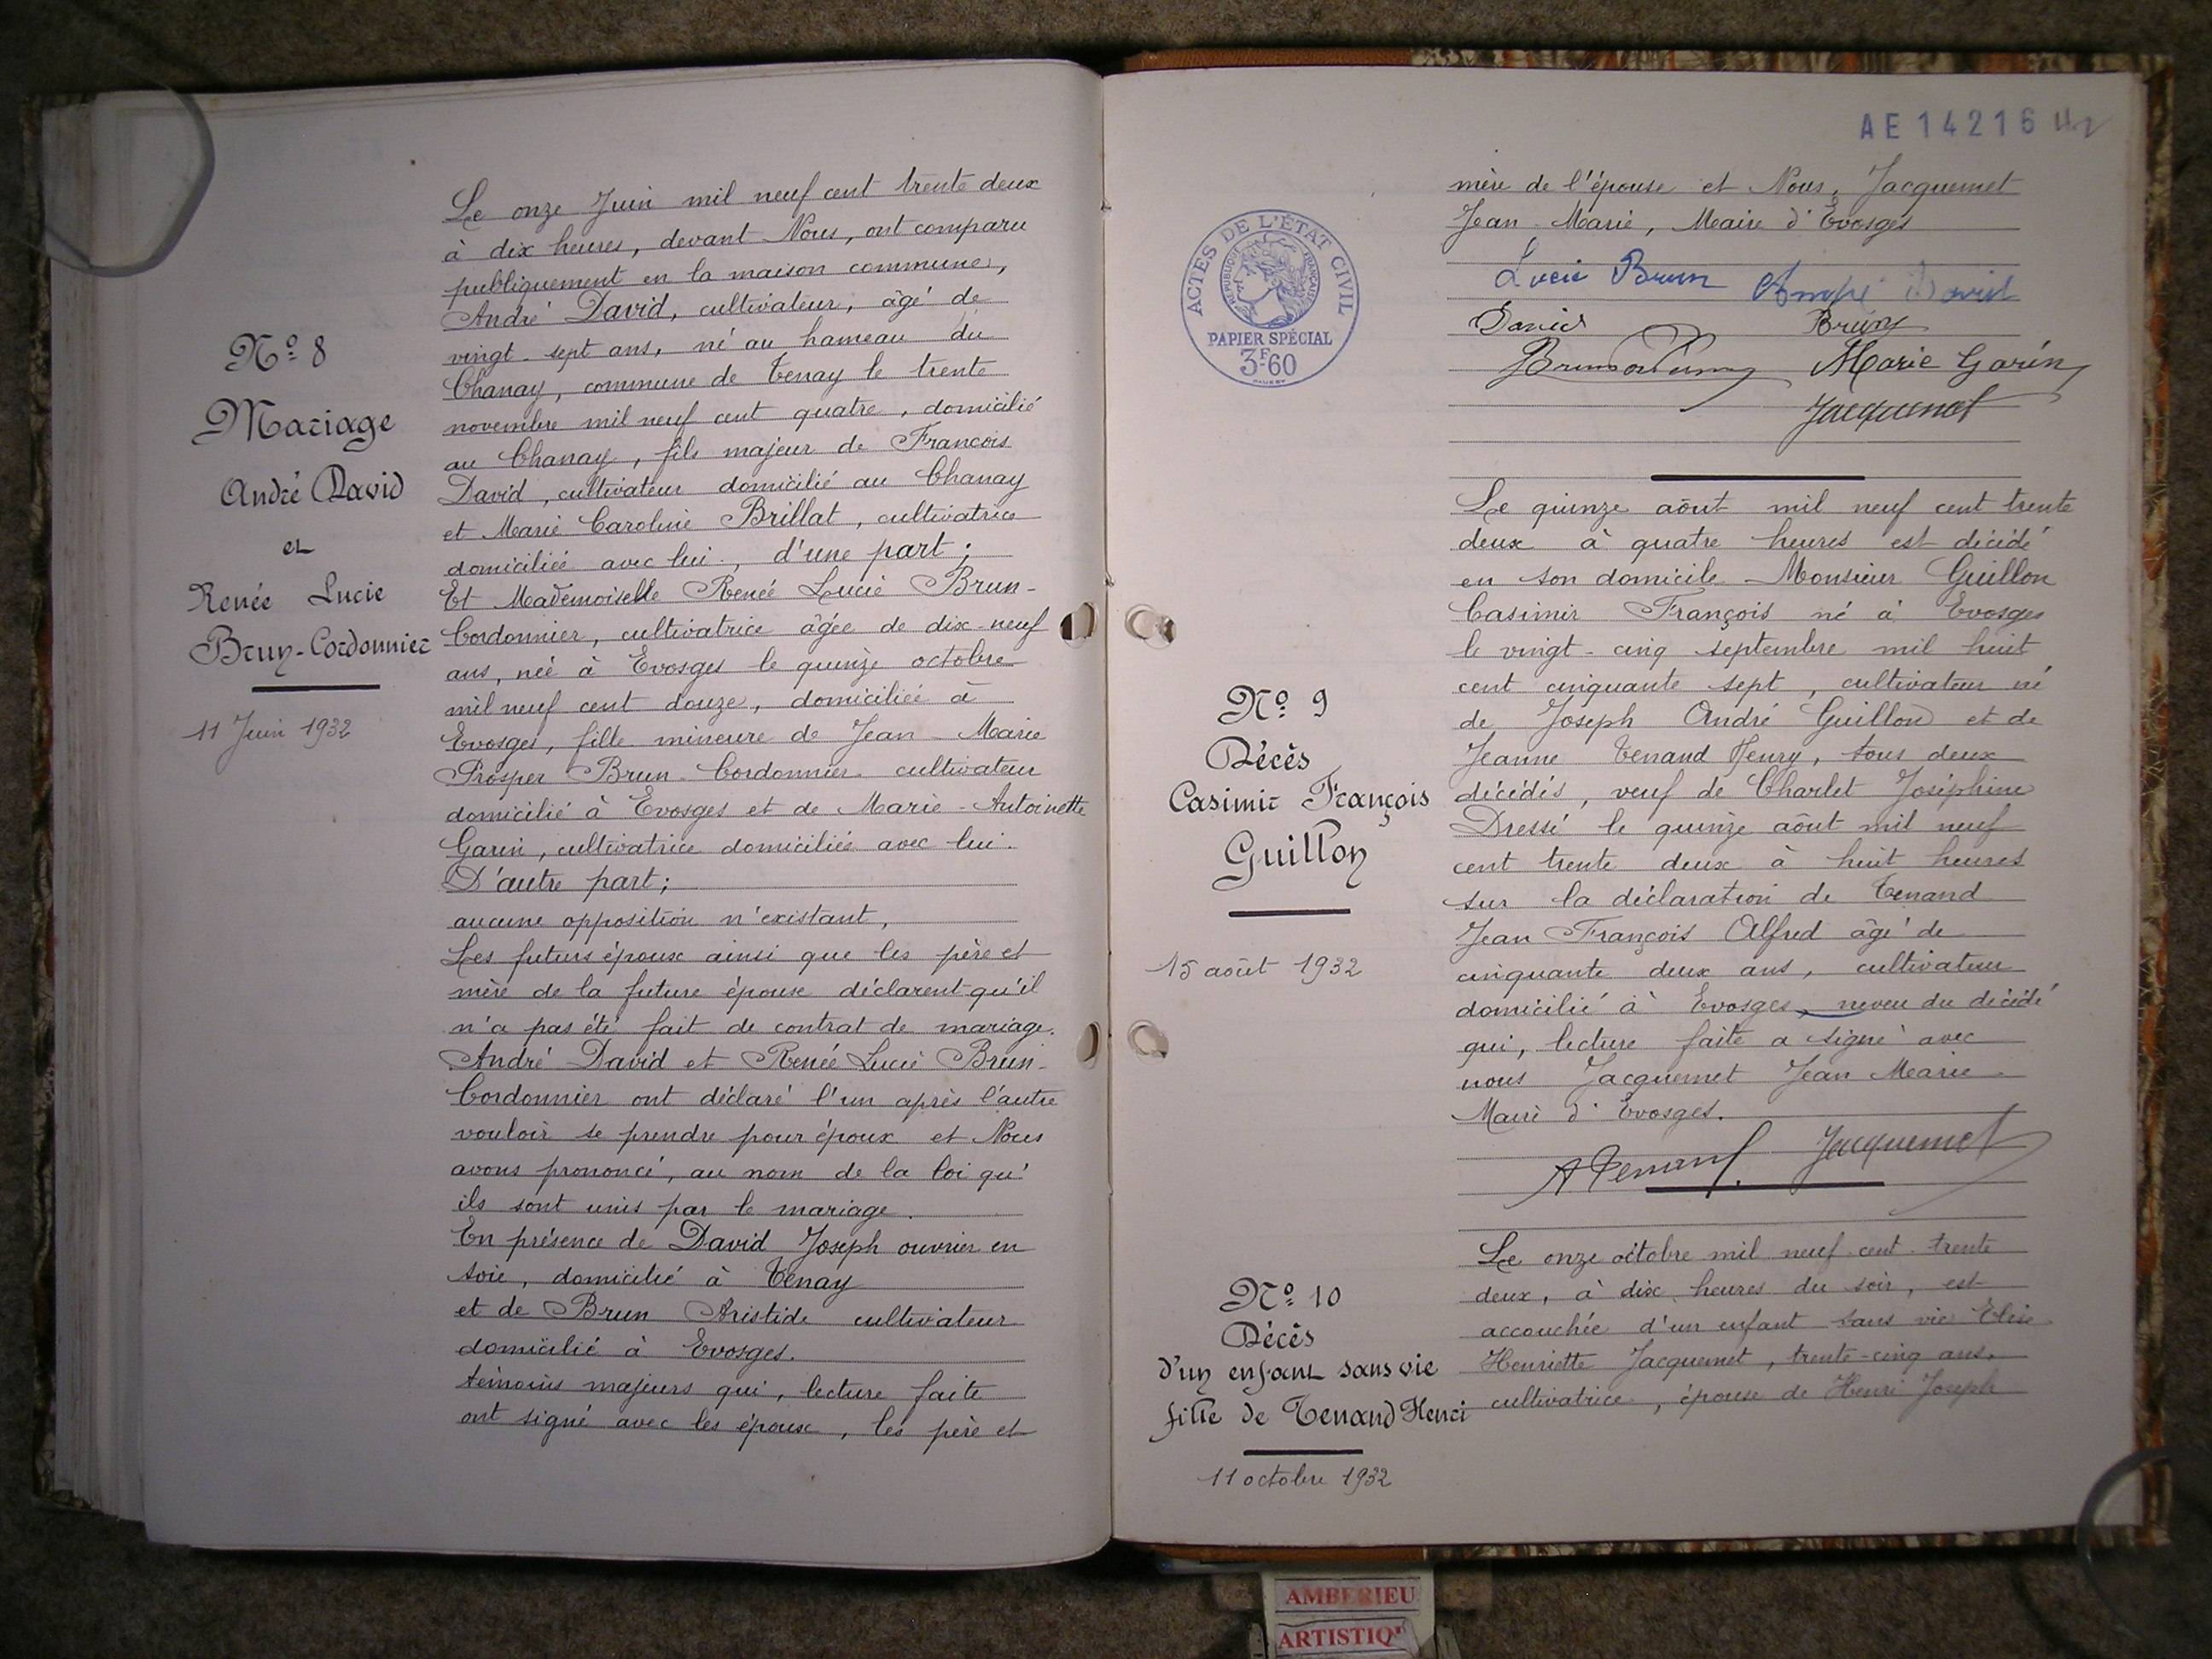 Nº 8
Mariage
André David
et
Renée Lucie
Brun-Cordonnier
11 Juin 1932
Le onze Juin mil neuf cent trente deux
à dix heures, devant Nous, ont comparu
publiquement en la maison commune,
André David, cultivateur, âgé de
vingt-sept ans, né au hameau du
Chanay, commune de Tenay le trente
novembre mil neuf cent quatre, domicilié
au Chanay, fils majeur de Francois
David, cultivateur domicilié au Chanay
et Marie Caroline Brillat, cultivatrice
domiciliée avec lui, d'une part;
Et Mademoiselle Renée Lucie Brun-
Cordonnier, cultivatrice âgée de dix-neuf
ans, née à Evosges le quinze octobre
mil neuf cent douze, domiciliée à
Evosges, fille mineure de Jean-Marie
Prosper Brun-Cordonnier cultivateur
domicilié à Evosges et de Marie-Antoinette
Garin, cultivatrice domiciliée avec lui.
D'autre part;
aucune opposition n'existant,
Les futurs époux ainsi que les père et
mère de la future épouse déclarent qu'il
n'a pas été fait de contrat de mariage.
André David et Renée Lucie Brun-
Cordonnier ont déclaré l'un après l'autre
vouloir se prendre pour époux et Nous
avons prononcé, au nom de la loi qu'
ils sont unis par le mariage.
En présence de David Joseph ouvrier en
soie, domicilié à Tenay
et de Brun Aristide cultivateur
domicilié à Evosges.
témoins majeurs qui, lecture faite
ont signé avec les époux, les père et
AE 14216
mère de l'épouse et Nous, Jacquemet
Jean-Marie, Maire d'Evosges
Lucie Brun André David
David Brun
Marie Garin
Jacquemet
ACTES DE L'ÉTAT CIVIL
RÉPUBLIQUE FRANÇAISE
PAPIER SPÉCIAL
3F60
Nº 9
Décès
Casimir François
Guillon
15 août 1932
Le quinze août mil neuf cent trente
deux à quatre heures est décédé
en son domicile Monsieur Guillon
Casimir François né à Evosges
le vingt-cinq septembre mil huit
cent cinquante sept, cultivateur né
de Joseph André Guillon et de
Jeanne Tenand Henry, tous deux
décédés, veuf de Charlet Joséphine
Dressé le quinze août mil neuf
cent trente deux à huit heures
sur la déclaration de Tenand
Jean François Alfred âgé de
cinquante deux ans, cultivateur
domicilié à Evosges, neveu du décédé
qui, lecture faite a signé avec
nous Jacquemet Jean Marie
Maire d'Evosges.
A Tenand Jacquemet
Nº 10
Décès
d'un enfant sans vie
fille de Tenand Henri
11 octobre 1932
Le onze octobre mil neuf cent trente
deux, à dix heures du soir, est
accouchée d'un enfant sans vie Elise
Henriette Jacquemet, trente-cinq ans,
cultivatrice, épouse de Henri Joseph
AMBERIEU
ARTISTIQ